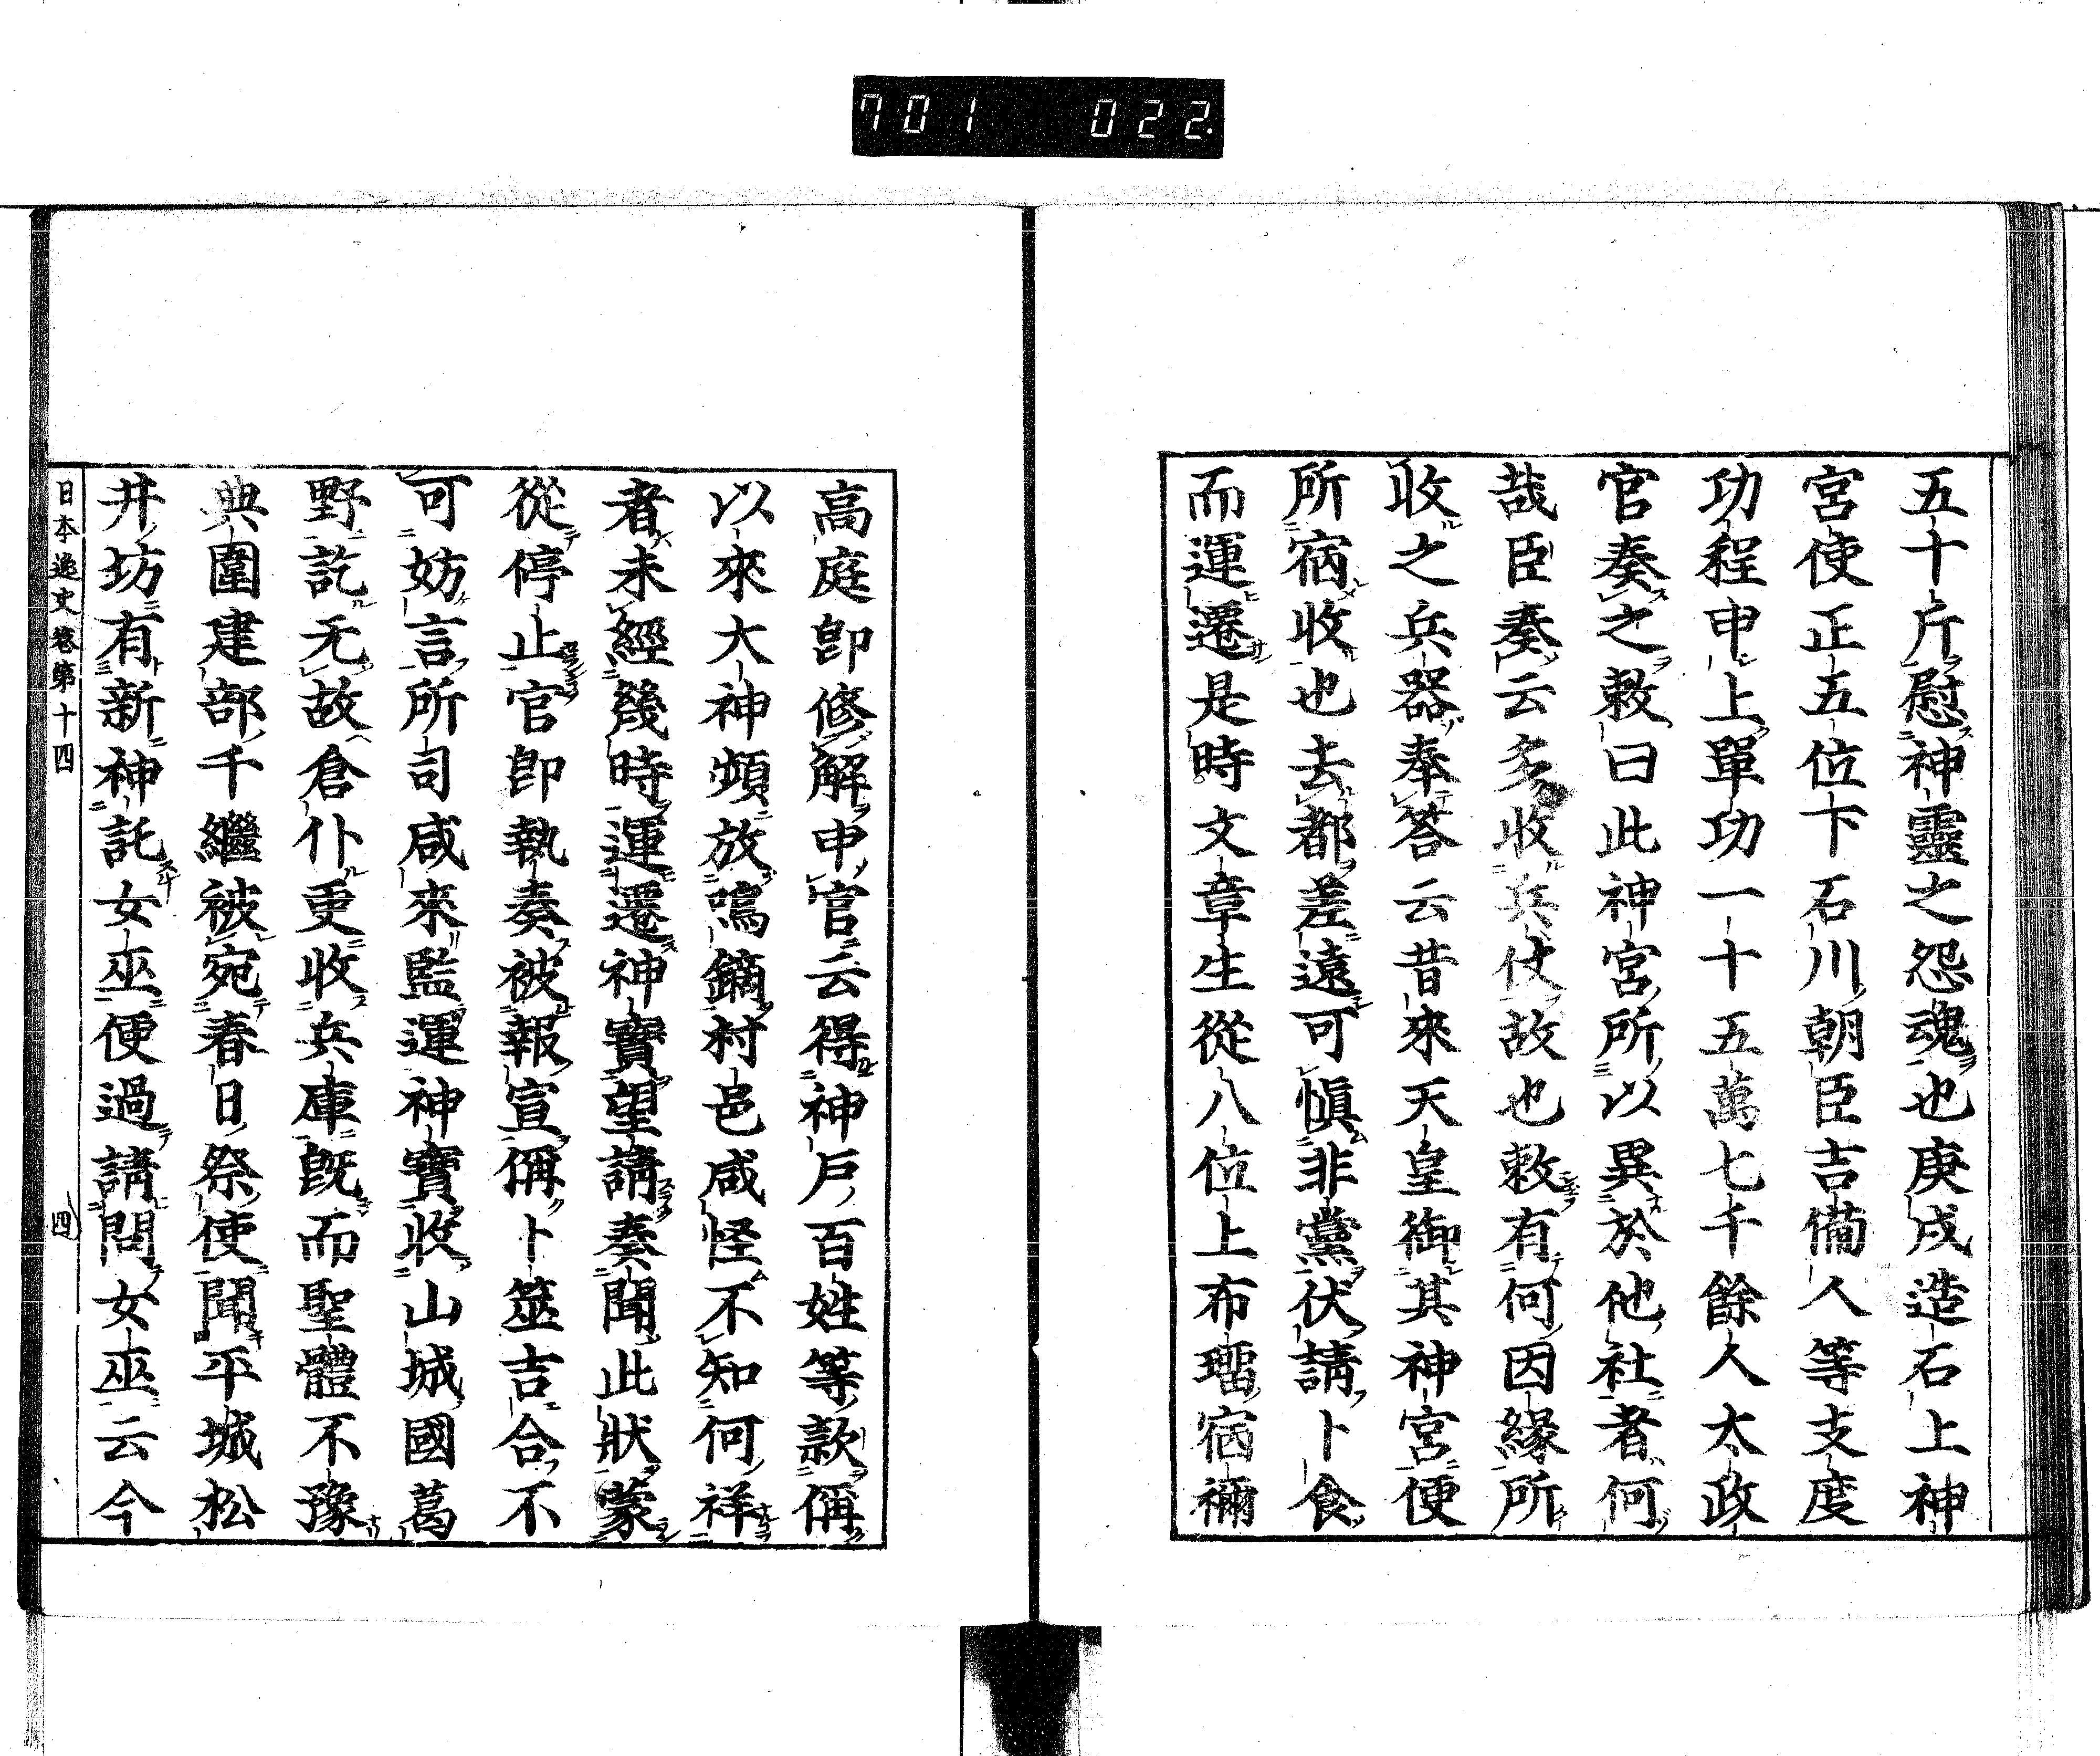 701 022.
五十斤慰神靈之怨魂也庚戌造石上神
宮使正五位下石川朝臣吉備人等支度
功程申上單功一十五萬七千餘人太政
官奏之敕曰此神宮所以異於他社者何
哉臣奏云多收兵仗故也敕有何因緣所
收之兵器奉答云昔來天皇御其神宮便
所宿收也去都差遠可慎非黨伏請卜食
而運遷是時文章生從八位上布瑠宿禰
高庭卽修解申官云得神戶百姓等款偁
以來大神頻放鳴鏑村邑咸怪不知何祥
者未經幾時運遷神寶望請奏聞此狀蒙
從停止官卽執奏被報宣偁卜筮吉合不
可妨言所司咸來監運神寶收山城國葛
野訖无故倉仆更收兵庫旣而聖體不豫
典闈建部千繼被宛春日祭使聞平城松
井坊有新神託女巫便過請問女巫云今
日本逸史 卷第十四
四